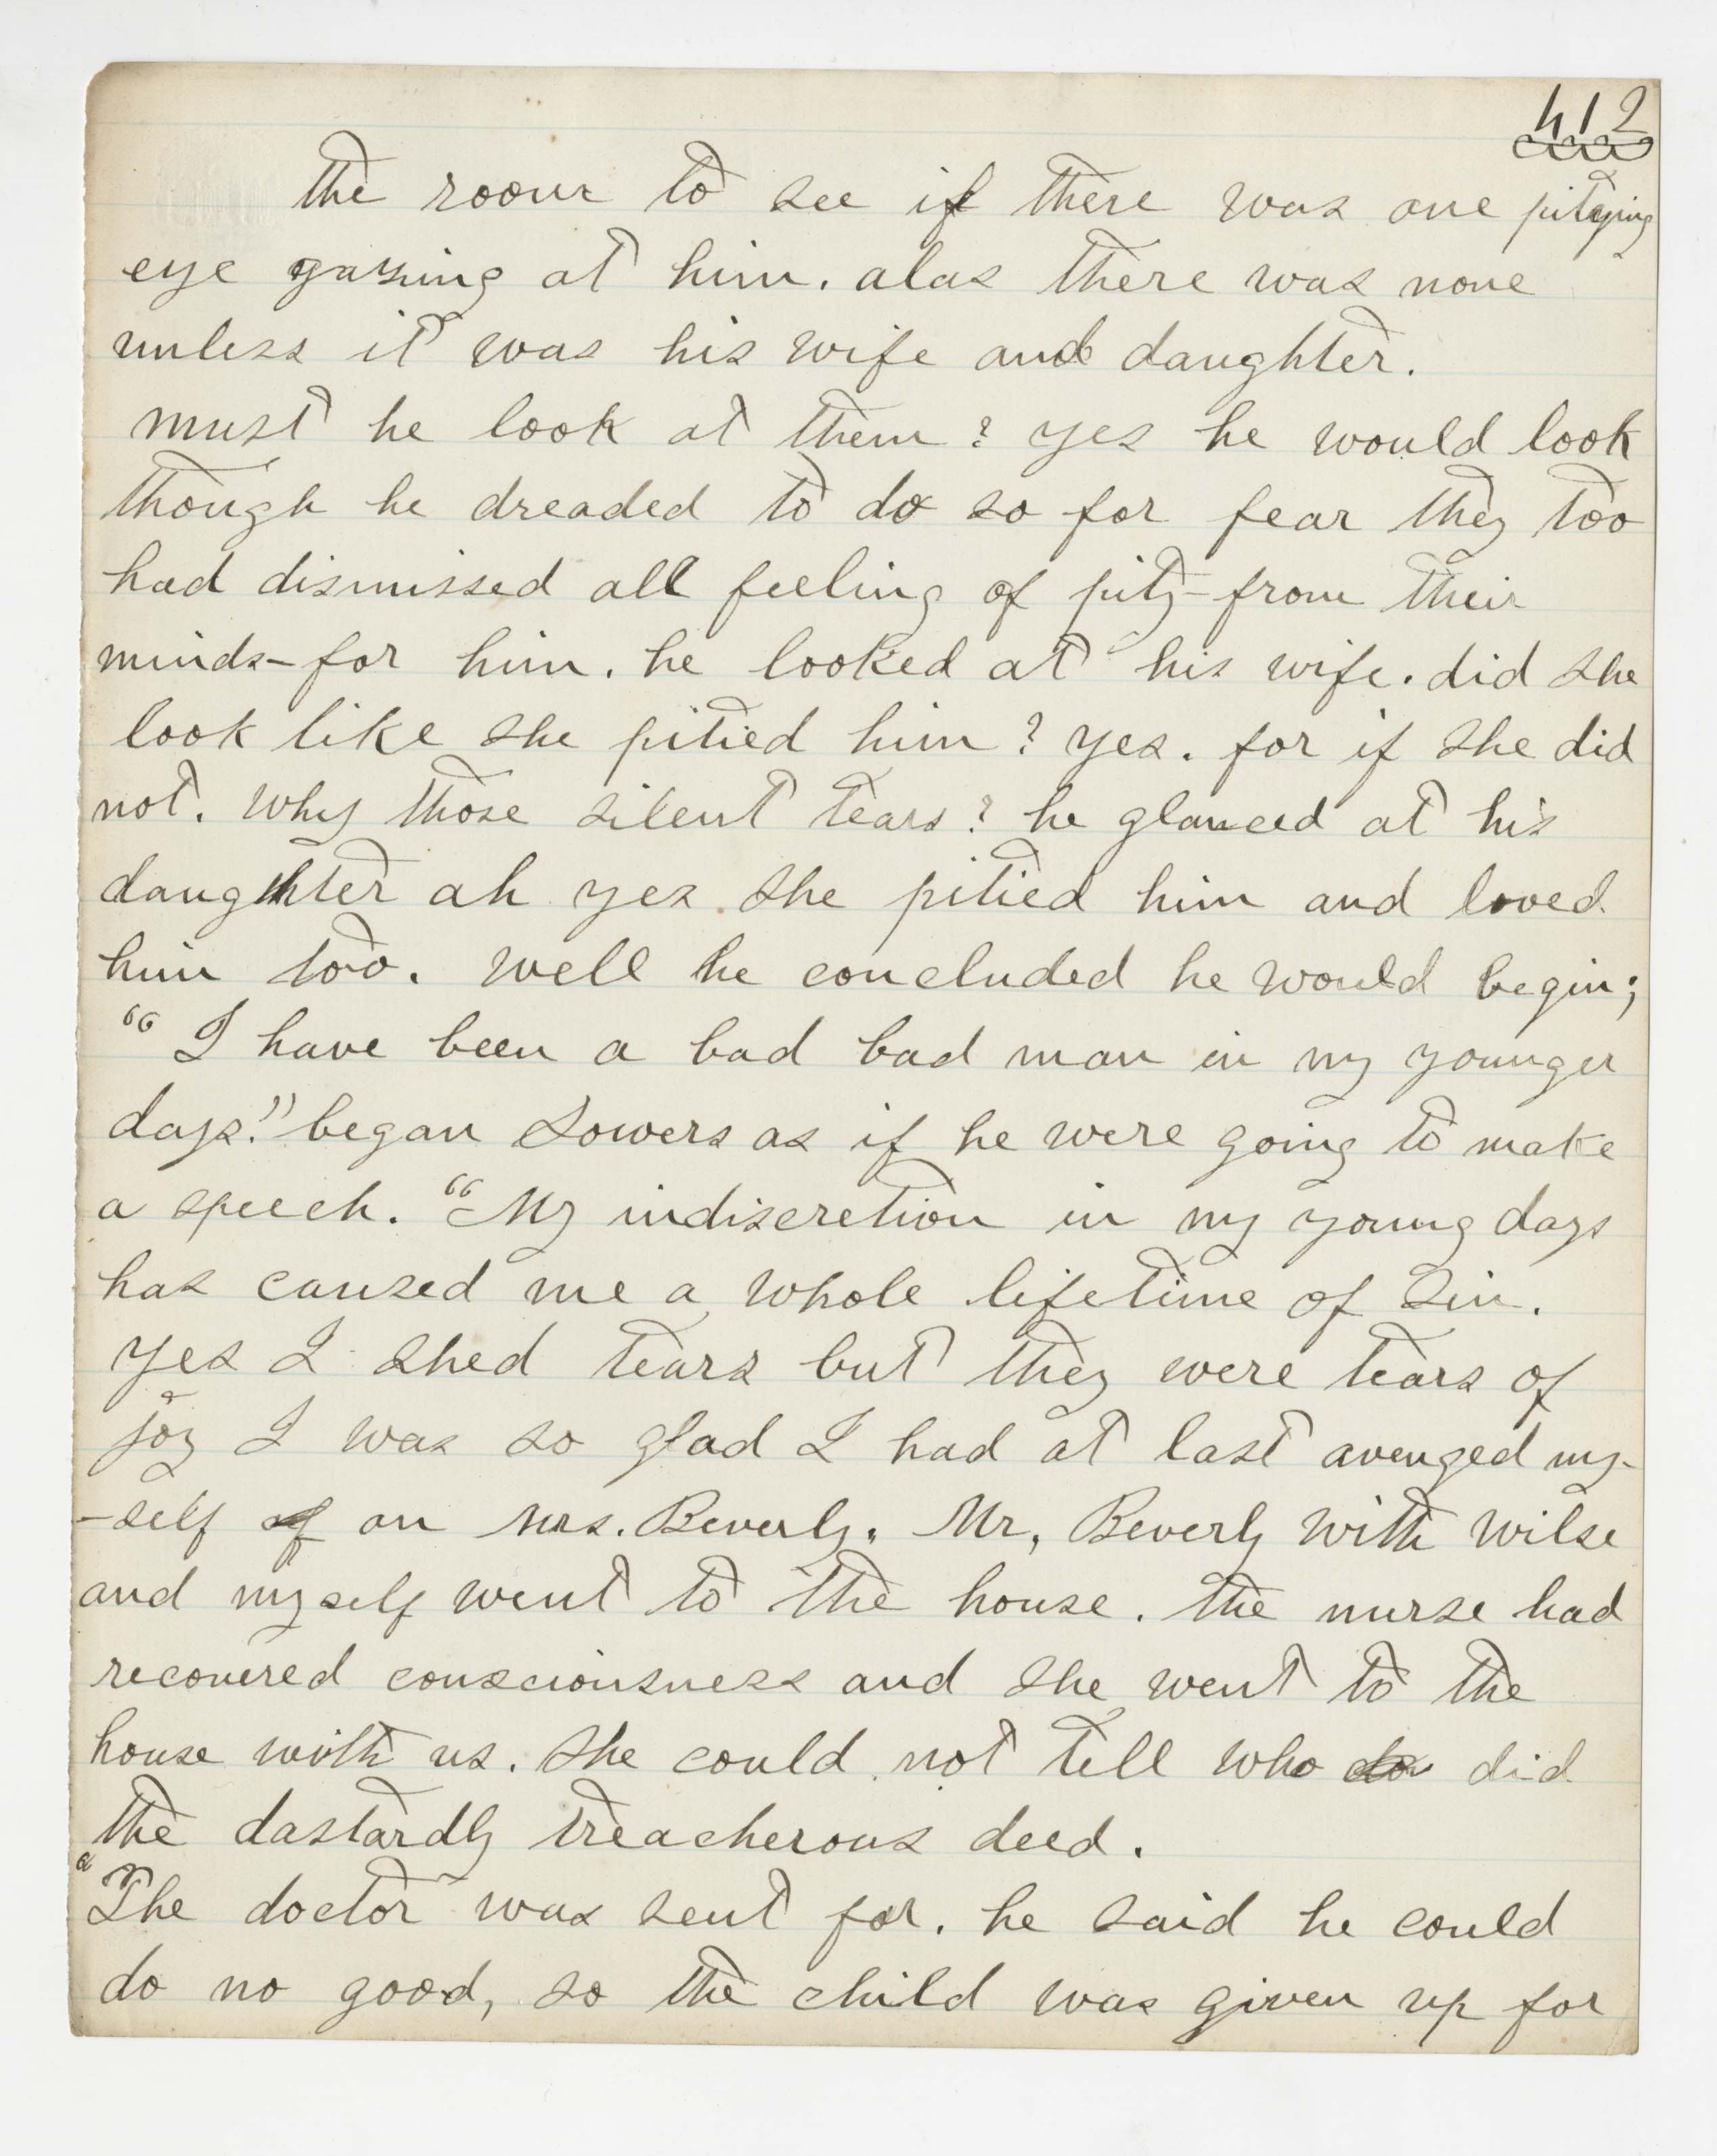 412
the room to see if there was one pitying
eye gazing at him. alas there was none
unless it was his wife and daughter.
must he look at them? yes he would look
though he dreaded to do so for fear they too
had dismissed all feeling of pity-from their
minds-for him. he looked at his wife. did she
look like she pitied him? yes. for if she did
not. why those silent tears? he glanced at his
daughter ah yes she pitied him and loved
him too. well he concluded he would begin;
"I have been a bad bad man in my younger
days." began Sowers as if he were going to make
a speech. "My indiscretion in my young days
has caused me a whole lifetime of Sin.
yes I shed tears but they were tears of
joy I was so glad I had at last avenged my-
-self of on Mrs. Beverly. Mr, Beverly with Wilse
and myself went to the house. the nurse had
recovered consciousness and she went to the
house with us. she could not tell who do did
the dastardly treacherous deed.
The doctor was sent for. he said he could
do no good, so the child was given up for